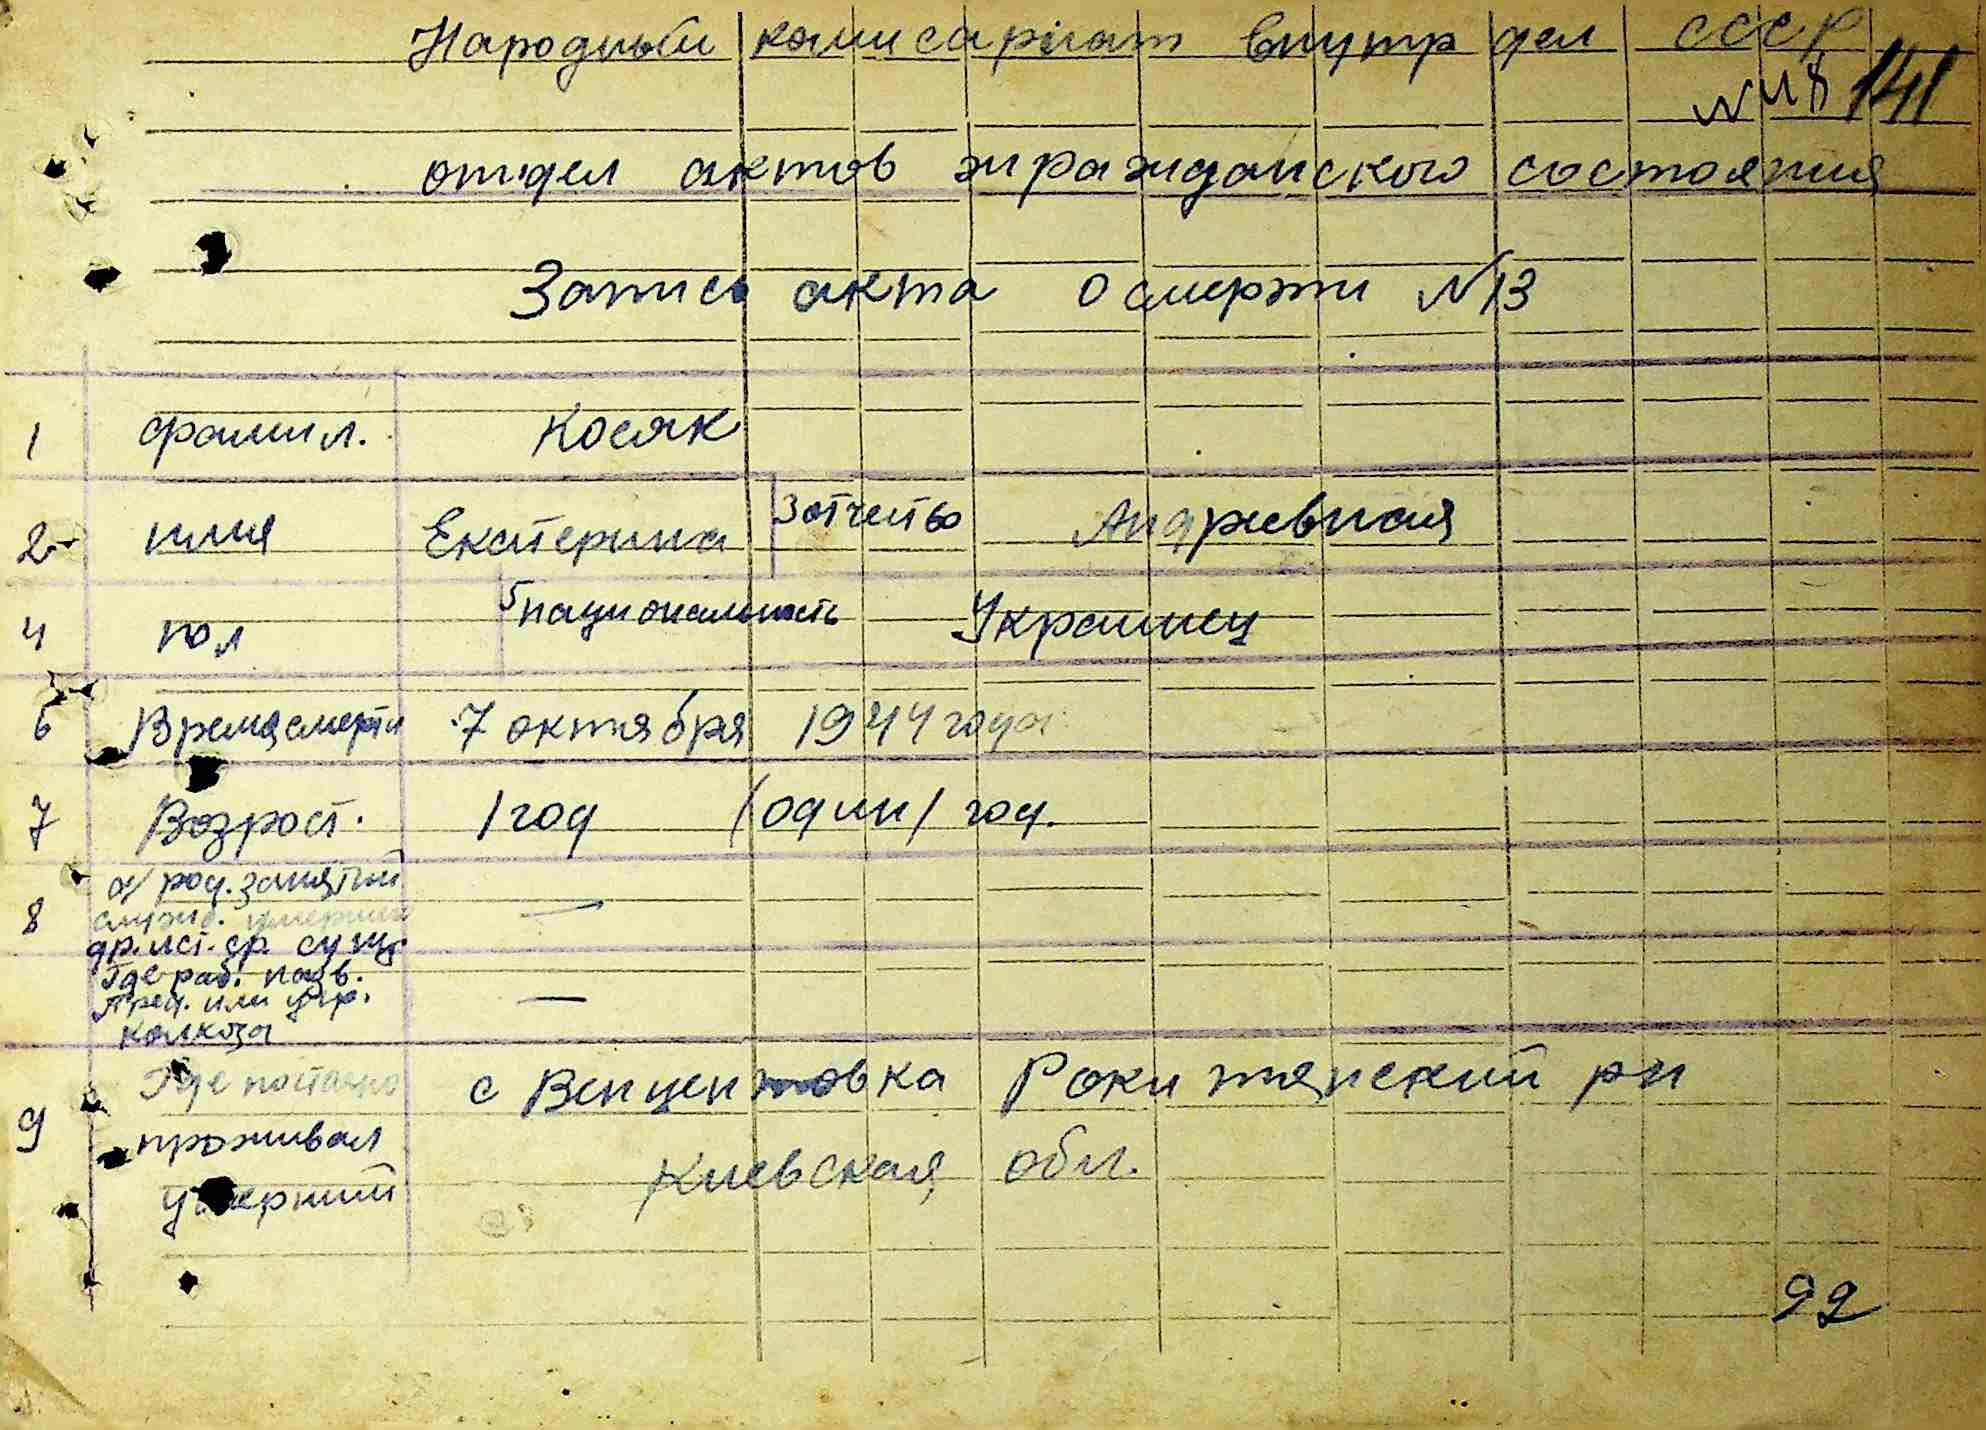 Народный комисариат внутр дел СССР
141
отдел актов жражданского состояния
Запись акта о смерти №13
1 фамил. Косяк
2 имя Екатерина 3 отчество Андревная
4 пол 5 национальность Украинец
6 Время смерти 7 октября 1944 года
7 Возрост. 1 год (один) год.
а/ род. занятий
8 —
др. ист. ср. сущ.
Где раб. назв.
пред. или учр. —
колхоза
Где постояно с Венцентовка Рокитянский рн
9 проживал
умерший Киевская обл.
92